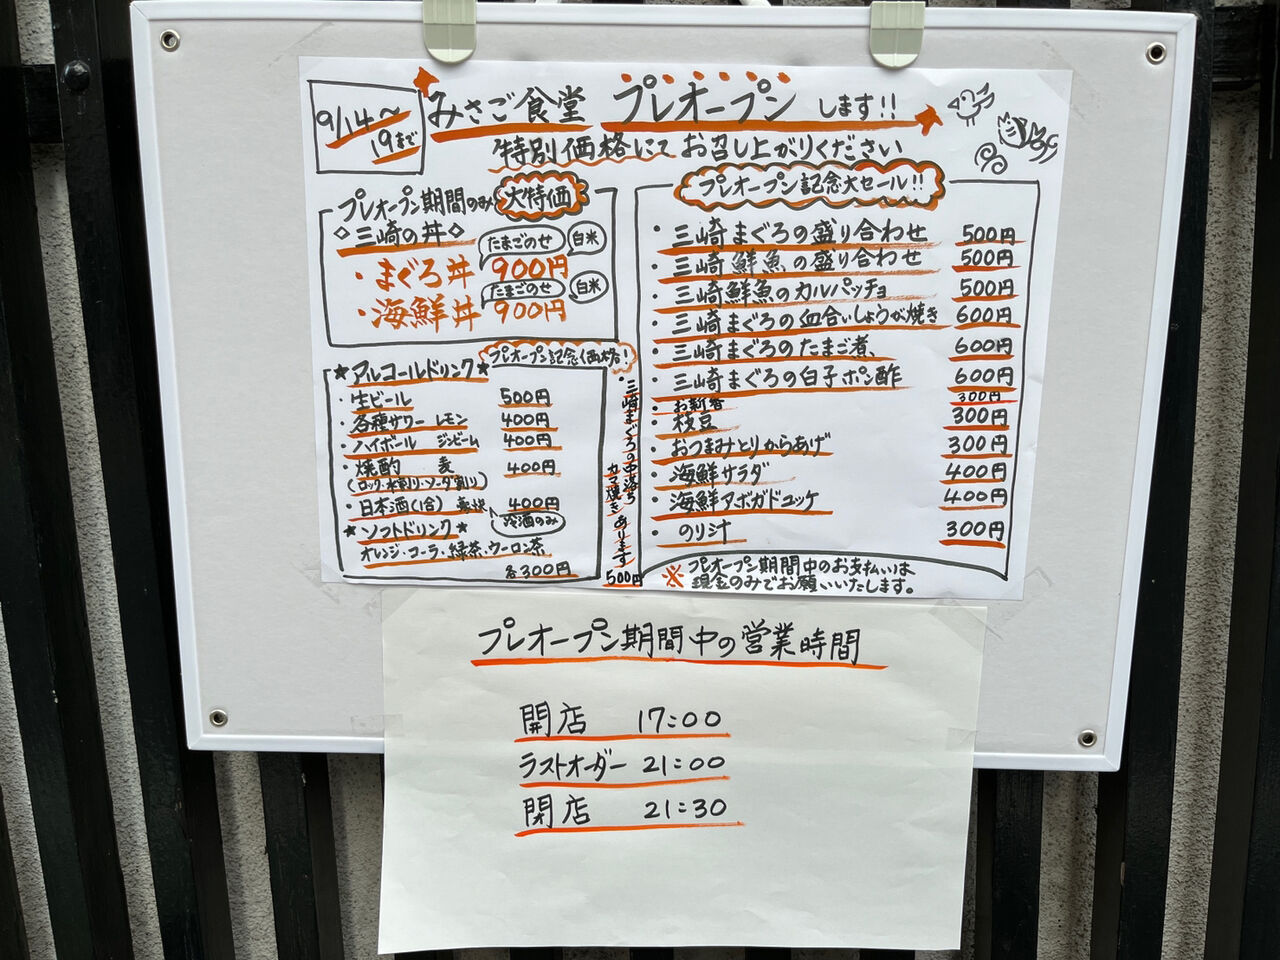 9/14〜
19まで
みさご食堂 プレオープン します!!
特別価格にて お召し上がりください
プレオープン期間のみ 大特価
◇三崎の丼◇
・まぐろ丼 たまごのせ 白米 900円
・海鮮丼 たまごのせ 白米 900円
プレオープン記念価格!
★アルコールドリンク★
・生ビール 500円
・各種サワー レモン 400円
・ハイボール ジンビーム 400円
・焼酎 麦 400円
(ロック・水割り・ソーダ割り)
・日本酒(1合) 400円
冷酒のみ
★ソフトドリンク★
オレンジ・コーラ・緑茶・ウーロン茶
各300円
・三崎まぐろの中落ち
カマ焼き あります
500円
プレオープン記念大セール!!
・三崎まぐろの盛り合わせ 500円
・三崎鮮魚の盛り合わせ 500円
・三崎鮮魚のカルパッチョ 500円
・三崎まぐろの血合いしょうが焼き 600円
・三崎まぐろのたまご煮、 600円
・三崎まぐろの白子ポン酢 600円
・お新香 300円
・枝豆 300円
・おつまみとりからあげ 300円
・海鮮サラダ 400円
・海鮮アボガドユッケ 400円
・のり汁 300円
※プレオープン期間中のお支払いは
現金のみでお願いいたします。
プレオープン期間中の営業時間
開店 17:00
ラストオーダー 21:00
閉店 21:30